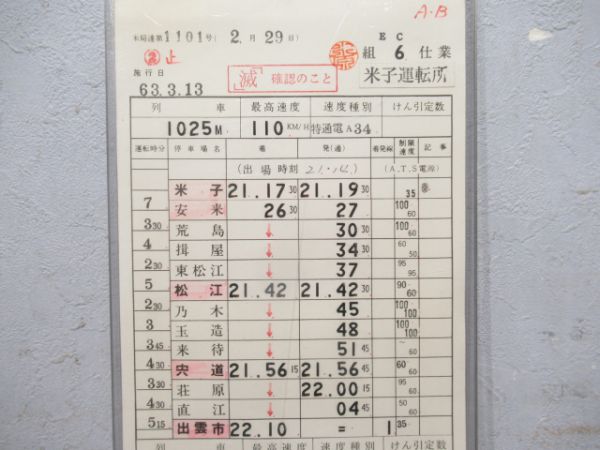 A・B
本局達第1101号(2.月29日)
EC
②止
組 6 仕業
施行日
「滅」確認のこと
米子運転所
63.3.13
列 車 最高速度 速度種別 けん引定数
1025M 110 KM/H 特通電A34
運転時分 停車場名 着 発(通) 着発線 制限速度 記事
(出場時刻 21.14.) (A.T.S電源)
米子 21.17 30 21.19 30 35
7 安来 26 30 27 100 60
3 30 荒島 ↓ 30 30 100 60
4 揖屋 ↓ 34 30 60 50
2 30 東松江 ↓ 37 95 95
5 松江 21.42 21.42 30 90 60
2 30 乃木 ↓ 45 100 100
3 玉造 ↓ 48 100 100
3 45 来待 ↓ 51 45 60
4 30 宍道 21.56 15 21.56 45 60 60
3 30 荘原 ↓ 22.00 15 60
4 30 直江 ↓ 04 45 50
5 15 出雲市 22.10 = 1 35
列 車 最高速度 速度種別 けん引定数